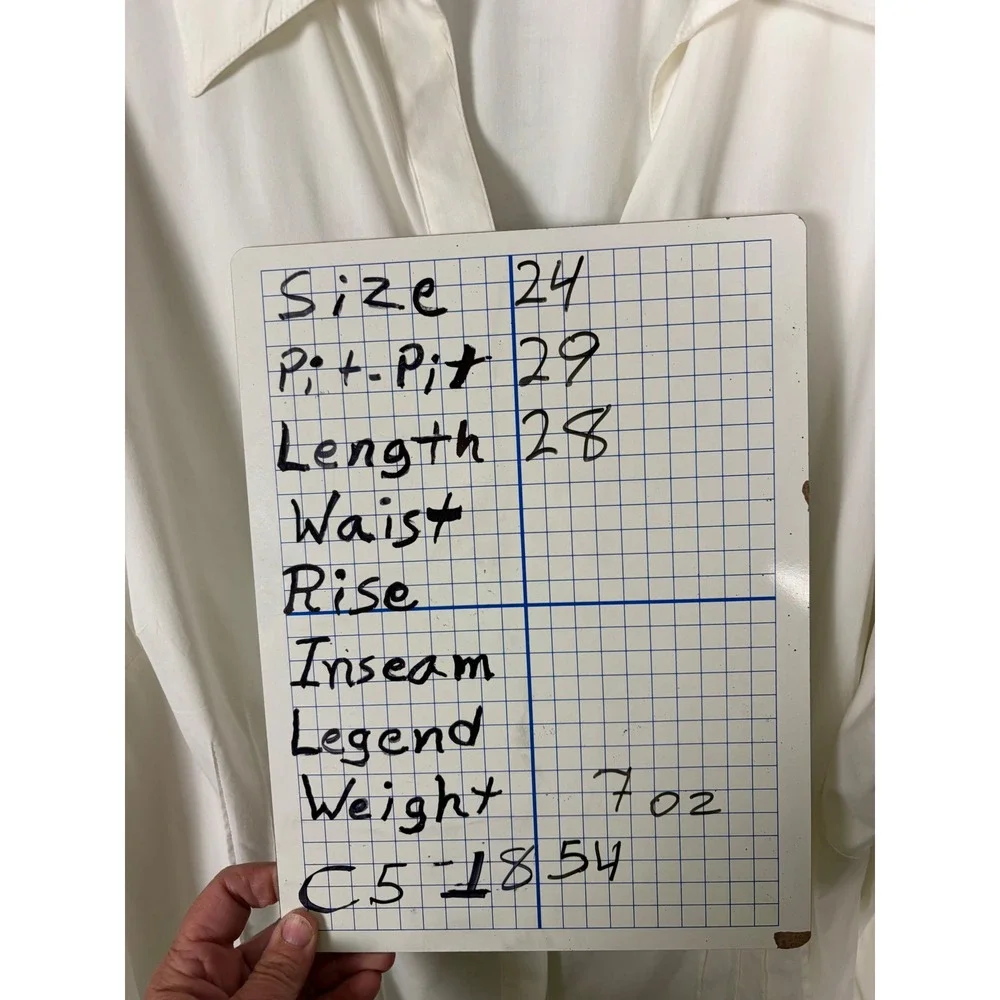 Size 24
Pit-Pit 29
Length 28
Waist
Rise
Inseam
Legend
Weight 7 oz
C5-1854